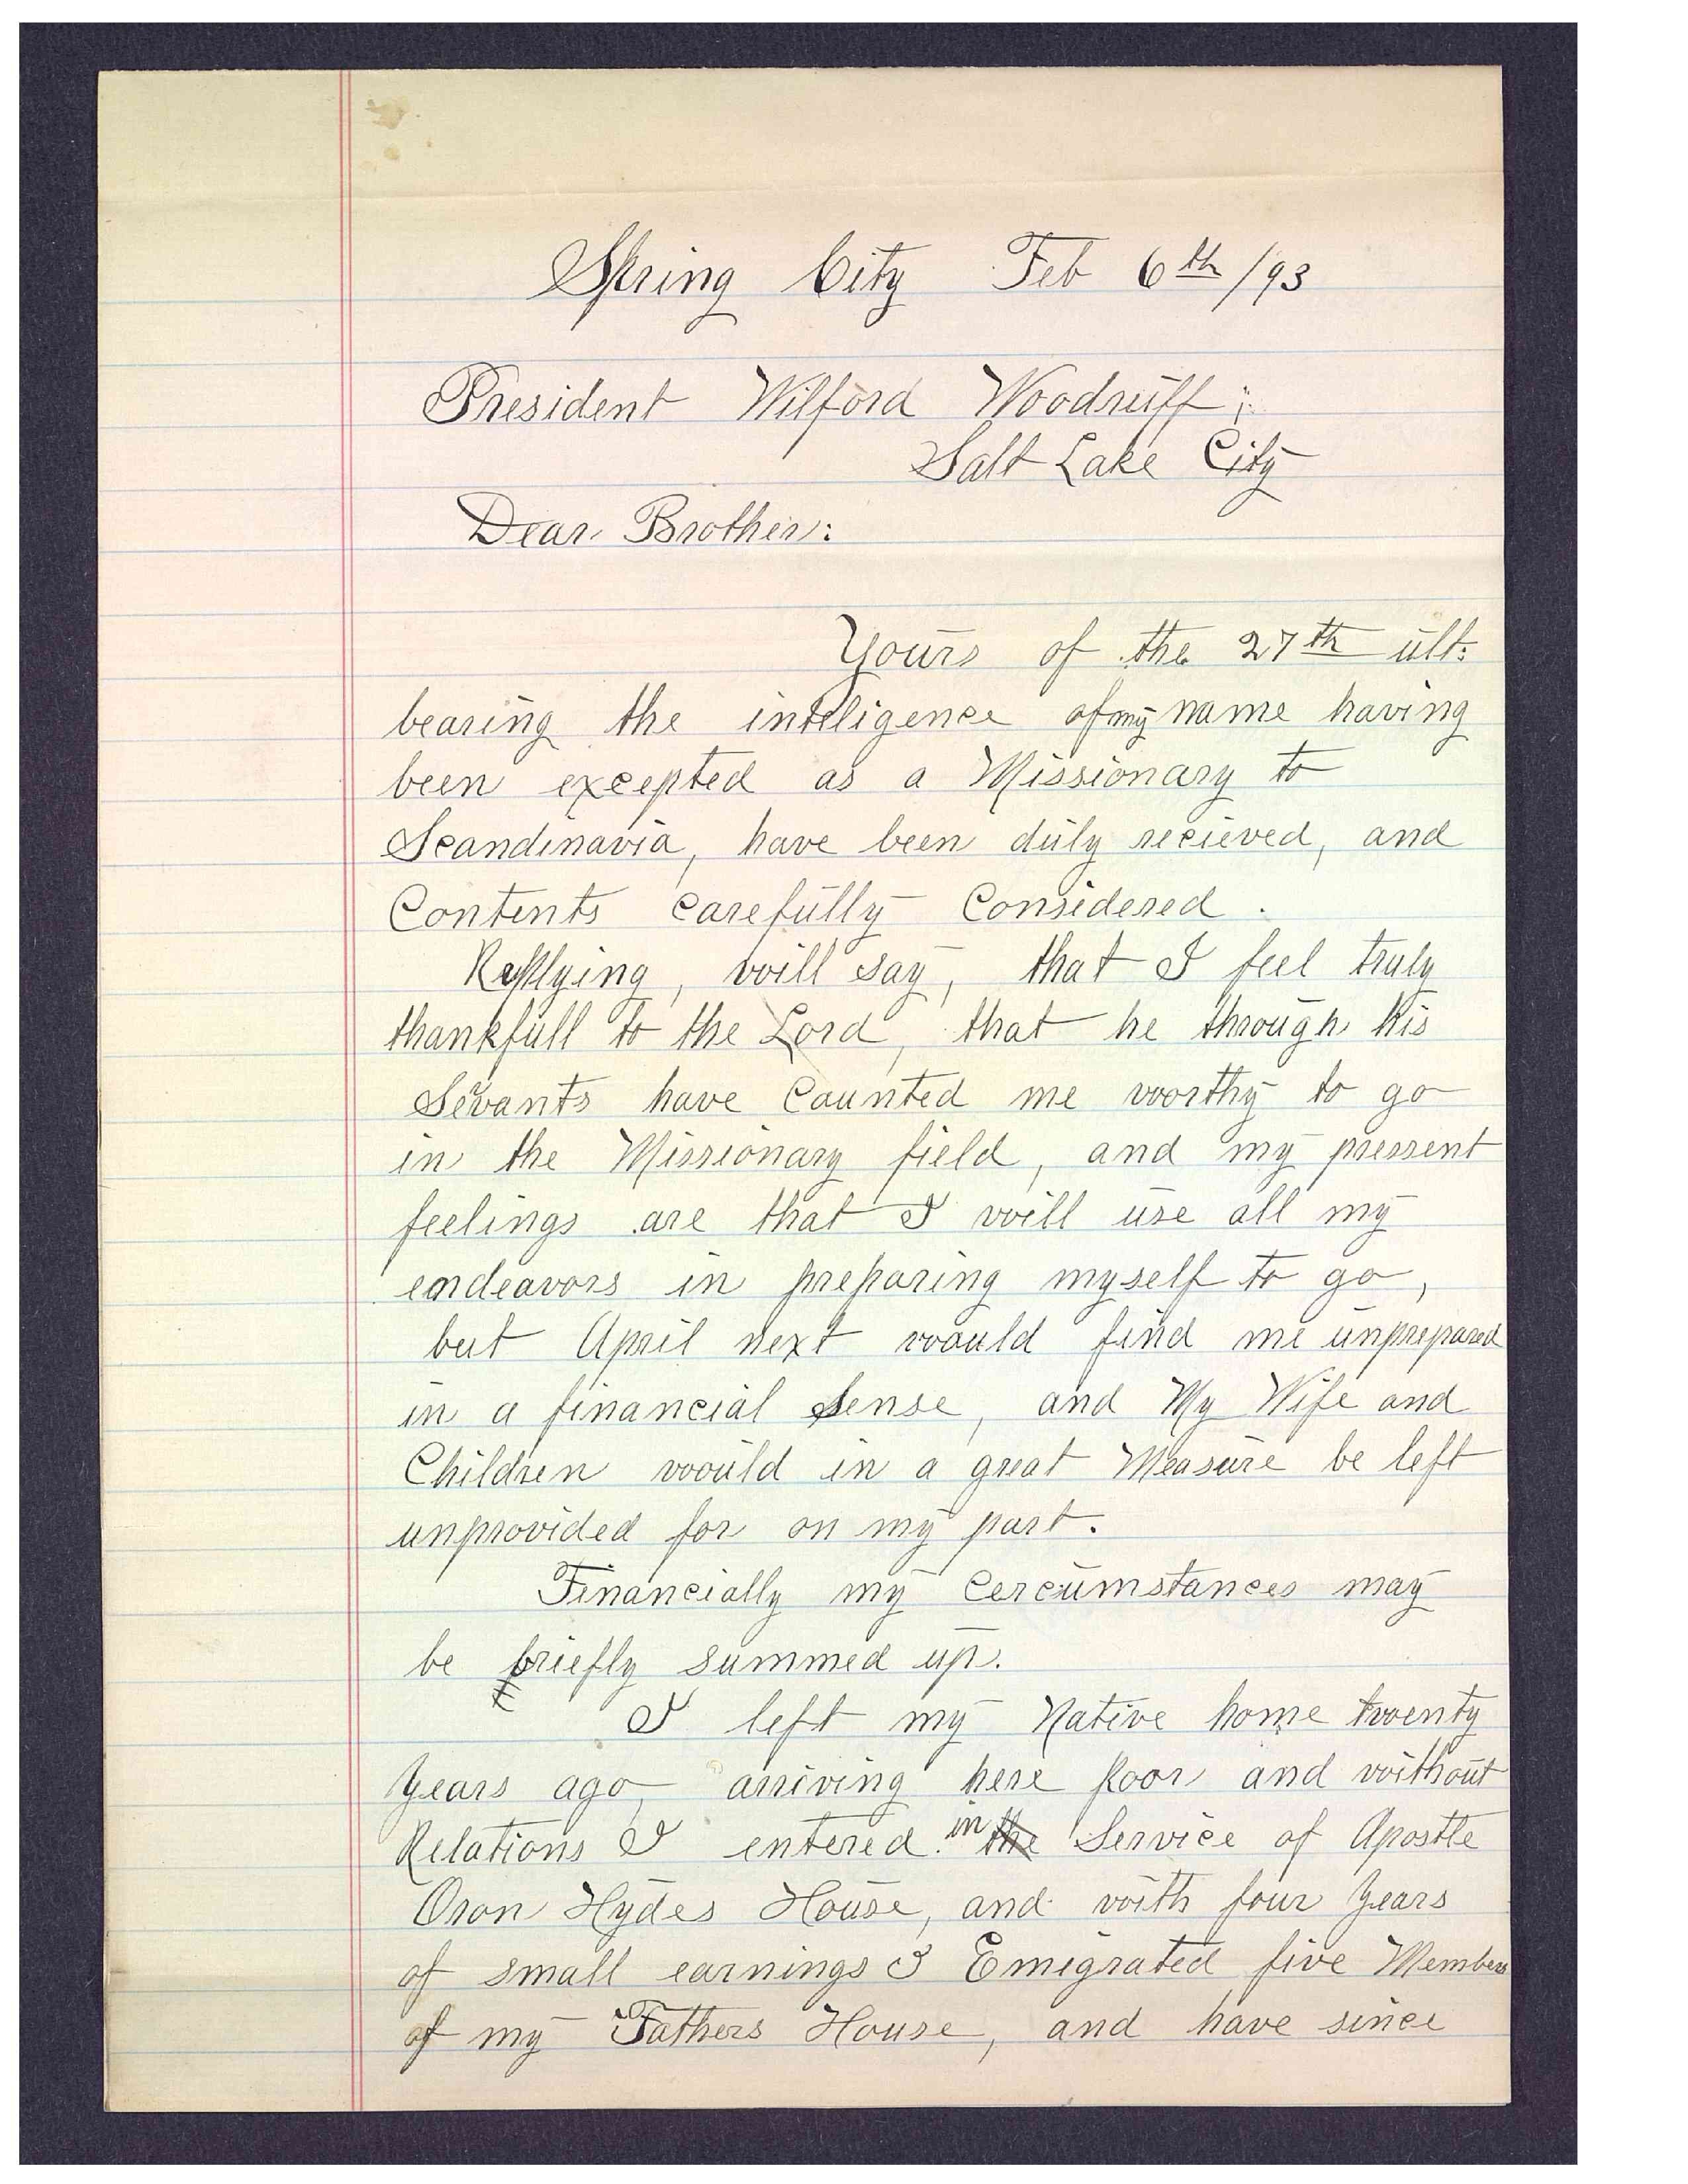 Spring City Feb 6th/93
President Wilford Woodruff;
Salt Lake City
Dear Brother:
Yours of the 27th ult:
bearing the inteligence of my name having
been excepted as a Missionary to
Scandinavia, have been duly recieved, and
Contents carefully Considered.
Replying, will say, that I feel truly
thankfull to the Lord, that he through his
Servants have Counted me worthy to go
in the Missionary field, and my pressent
feelings are that I will use all my
endeavors in preparing myself to go,
but April next would find me unprepared
in a financial sense, and My Wife and
Children would in a great Measure be left
unprovided for on my part.
Financially my Cercumstances may
be briefly summed up.
I left my Native home twenty
Years ago, arriving here poor and without
Relations I entered in the Service of Apostle
Orson Hydes House, and with four Years
of small earnings I Emigrated five Members
of my Fathers House, and have since